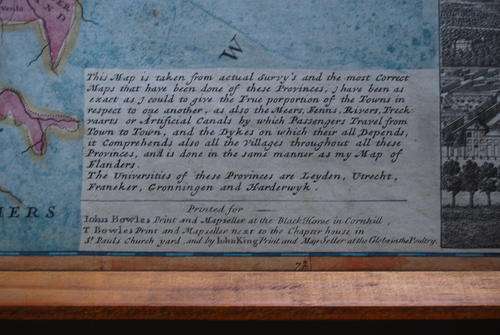 W
This Map is taken from actual Survy's and the most Correct
Maps that have been done of these Provinces, j have been as
exact as j could to give the True porportion of the Towns in
respect to one another, as also the Meers, Fenns, Rivers, Treck-
vaarts or Artificial Canals by which Passengers Travel from
Town to Town, and the Dykes on which their all Depends,
it Comprehends also all the Villages throughout all these
Provinces, and is done in the same manner as my Map of
Flanders.
The Universities of these Provinces are Leyden, Utrecht,
Franeker, Gronningen and Harderwyk.
Printed for
John Bowles Print and Mapseller at the Black Horse in Cornhill
T Bowles Print and Mapseller next to the Chapter house in
St. Pauls Church yard, and by John King Print and Map Seller at the Globe in the Poultry.